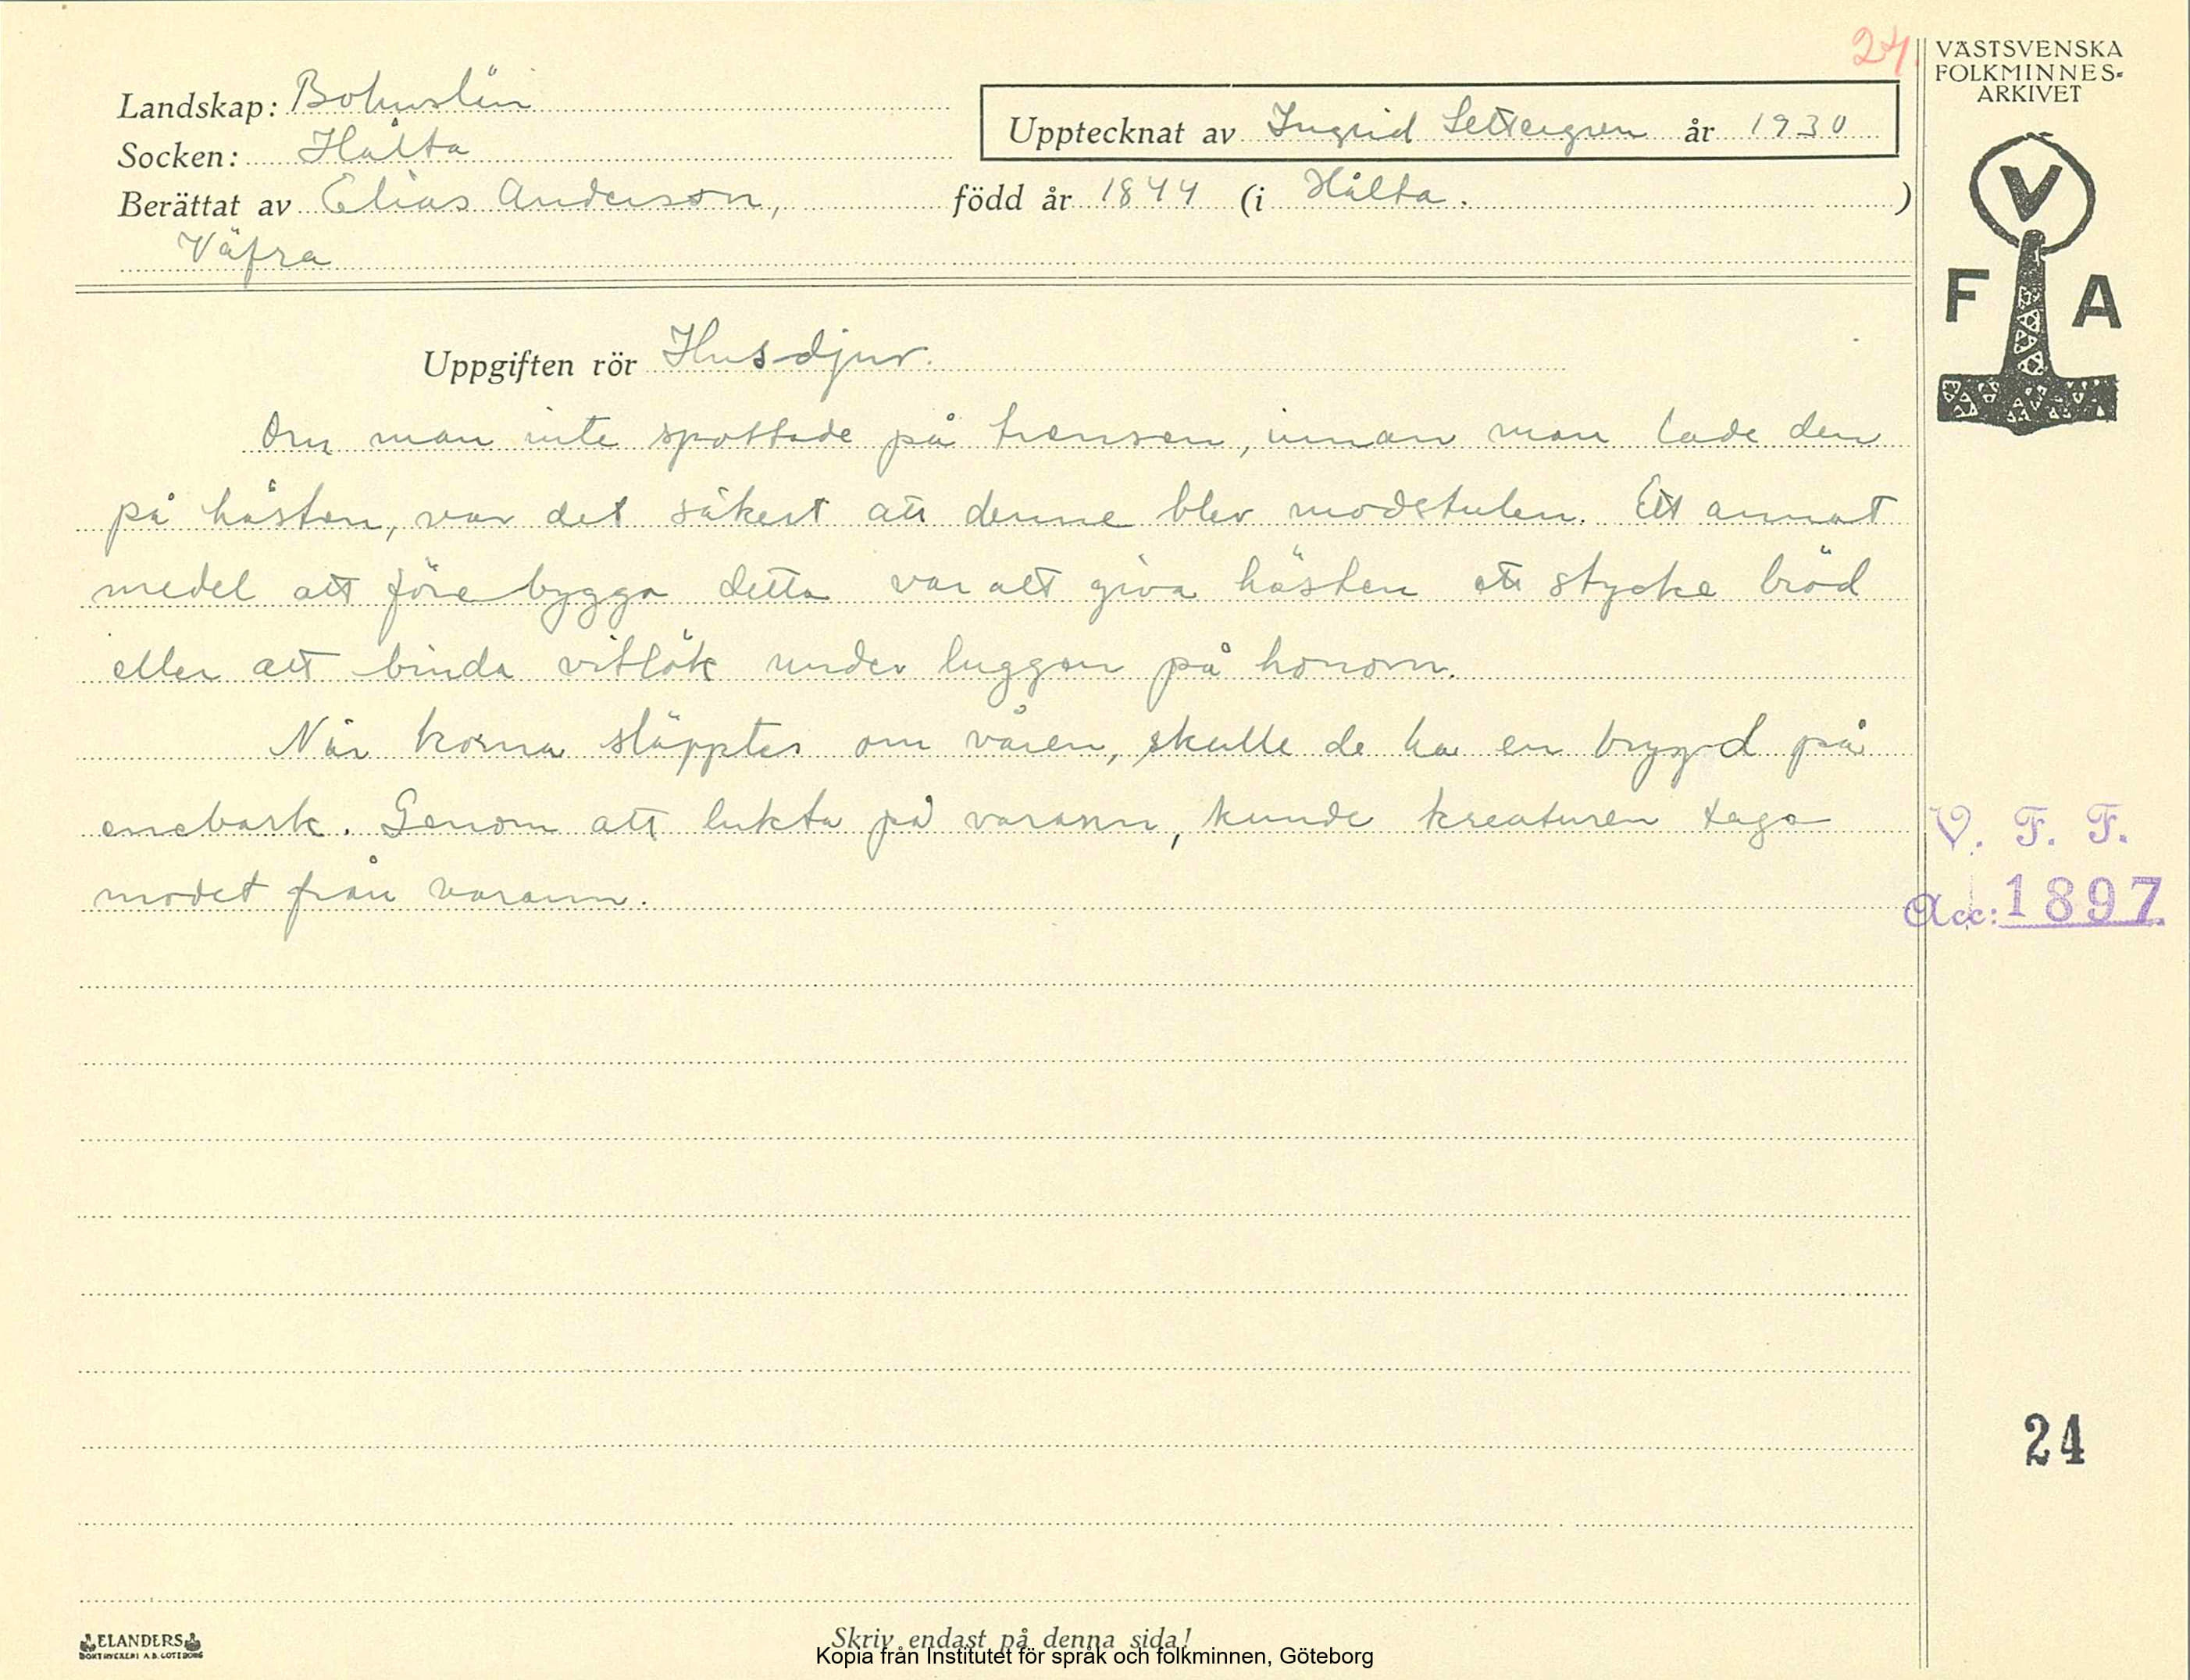 24.
VÄSTSVENSKA
FOLKMINNES-
ARKIVET
Landskap: Bohuslän
Socken: Hålta
Upptecknat av Ingrid Settergren år 1930
Berättat av Elias Anderson, född år 1844 (i Hålta. )
Väfra
V
F A
Uppgiften rör Husdjur.
Om man inte spottade på trensen, innan man lade den
på hästen, var det säkert att denne blev modstulen. Ett annat
medel att förebygga detta var att giva hästen ett stycke bröd
eller att binda vitlök under luggen på honom.
När korna släpptes om våren, skulle de ha en brygd på
enebark. Genom att lukta på varann, kunde kreaturen taga
modet från varann.
V. F. F.
Acc: 1897
24
ELANDERS
BOKTRYCKERI A.B. GÖTEBORG
Skriv endast på denna sida!
Kopia från Institutet för språk och folkminnen, Göteborg